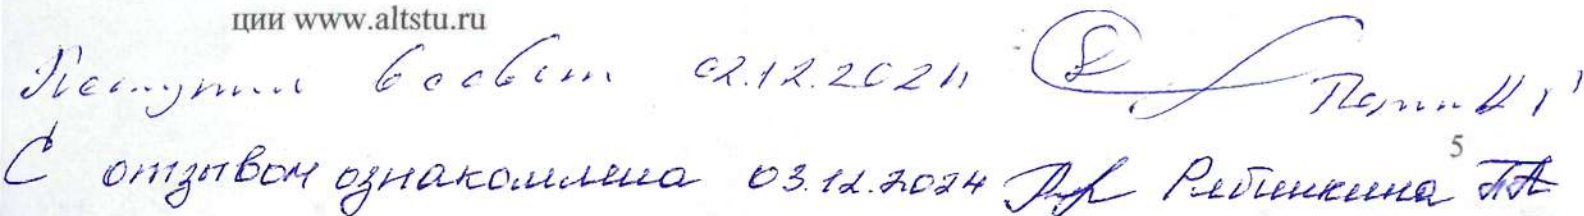 ции www.altstu.ru
Поступил в совет 02.12.2024
5
С отзывом ознакомлена 03.12.2024 Рябинкина